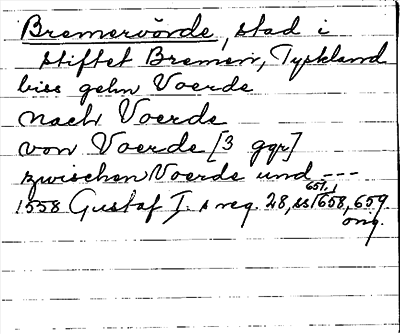 Bremervörde, stad i
stiftet Bremen, Tyskland
biss gehn Voerde
nach Voerde
von Voerde [3 ggr]
zwischen Voerde und ---
1558 Gustaf I. s reg. 28, ss 657, 658, 659
orig.